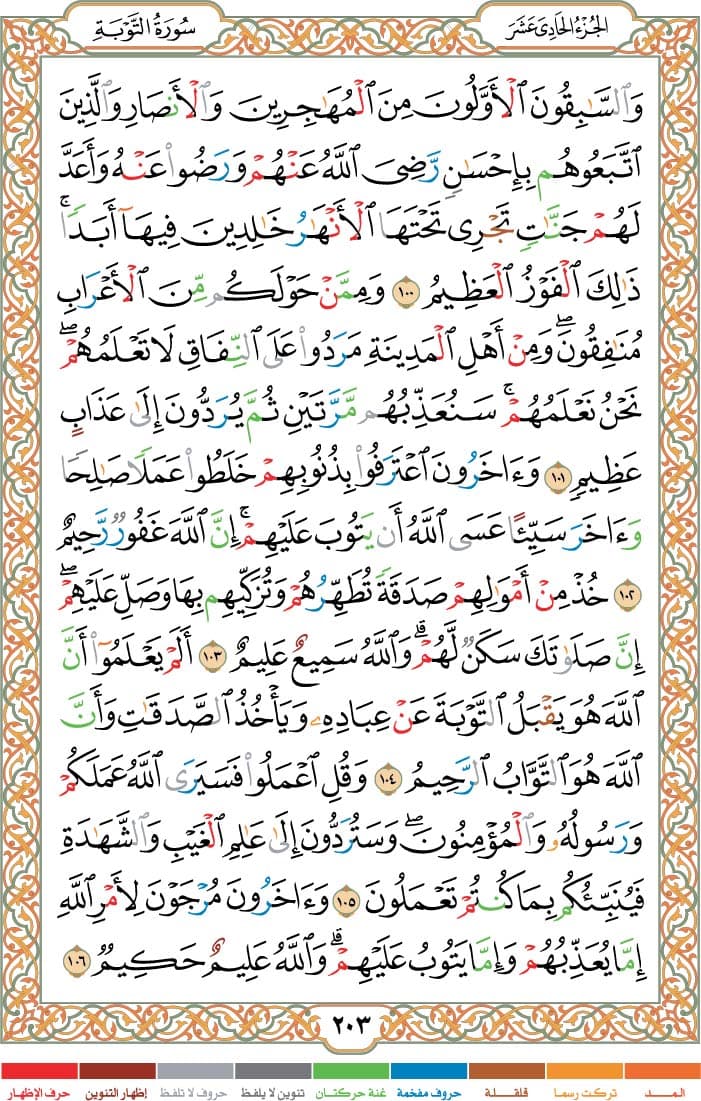 الجُزْءُ الحَادِىَ عَشَرَ
سُورَةُ التَّوْبَةِ
وَٱلسَّـٰبِقُونَ ٱلْأَوَّلُونَ مِنَ ٱلْمُهَـٰجِرِينَ وَٱلْأَنصَارِ وَٱلَّذِينَ
ٱتَّبَعُوهُم بِإِحْسَـٰنٍ رَّضِىَ ٱللَّهُ عَنْهُمْ وَرَضُوا۟ عَنْهُ وَأَعَدَّ
لَهُمْ جَنَّـٰتٍ تَجْرِى تَحْتَهَا ٱلْأَنْهَـٰرُ خَـٰلِدِينَ فِيهَآ أَبَدًا ۚ
ذَٰلِكَ ٱلْفَوْزُ ٱلْعَظِيمُ ١٠٠ وَمِمَّنْ حَوْلَكُم مِّنَ ٱلْأَعْرَابِ
مُنَـٰفِقُونَ ۖ وَمِنْ أَهْلِ ٱلْمَدِينَةِ مَرَدُوا۟ عَلَى ٱلنِّفَاقِ لَا تَعْلَمُهُمْ ۖ
نَحْنُ نَعْلَمُهُمْ ۚ سَنُعَذِّبُهُم مَّرَّتَيْنِ ثُمَّ يُرَدُّونَ إِلَىٰ عَذَابٍ
عَظِيمٍ ١٠١ وَءَاخَرُونَ ٱعْتَرَفُوا۟ بِذُنُوبِهِمْ خَلَطُوا۟ عَمَلًا صَـٰلِحًا
وَءَاخَرَ سَيِّئًا عَسَى ٱللَّهُ أَن يَتُوبَ عَلَيْهِمْ ۚ إِنَّ ٱللَّهَ غَفُورٌ رَّحِيمٌ
١٠٢ خُذْ مِنْ أَمْوَٰلِهِمْ صَدَقَةً تُطَهِّرُهُمْ وَتُزَكِّيهِم بِهَا وَصَلِّ عَلَيْهِمْ ۖ
إِنَّ صَلَوٰتَكَ سَكَنٌ لَّهُمْ ۗ وَٱللَّهُ سَمِيعٌ عَلِيمٌ ١٠٣ أَلَمْ يَعْلَمُوٓا۟ أَنَّ
ٱللَّهَ هُوَ يَقْبَلُ ٱلتَّوْبَةَ عَنْ عِبَادِهِۦ وَيَأْخُذُ ٱلصَّدَقَـٰتِ وَأَنَّ
ٱللَّهَ هُوَ ٱلتَّوَّابُ ٱلرَّحِيمُ ١٠٤ وَقُلِ ٱعْمَلُوا۟ فَسَيَرَى ٱللَّهُ عَمَلَكُمْ
وَرَسُولُهُۥ وَٱلْمُؤْمِنُونَ ۖ وَسَتُرَدُّونَ إِلَىٰ عَـٰلِمِ ٱلْغَيْبِ وَٱلشَّهَـٰدَةِ
فَيُنَبِّئُكُم بِمَا كُنتُمْ تَعْمَلُونَ ١٠٥ وَءَاخَرُونَ مُرْجَوْنَ لِأَمْرِ ٱللَّهِ
إِمَّا يُعَذِّبُهُمْ وَإِمَّا يَتُوبُ عَلَيْهِمْ ۗ وَٱللَّهُ عَلِيمٌ حَكِيمٌ ١٠٦
٢٠٣
المـــد تركت رسما قلقــلة حروف مفخمة غنة حركتـان تنوين لا يلفظ حروف لا تلفظ إظهار التنوين حرف الإظهار